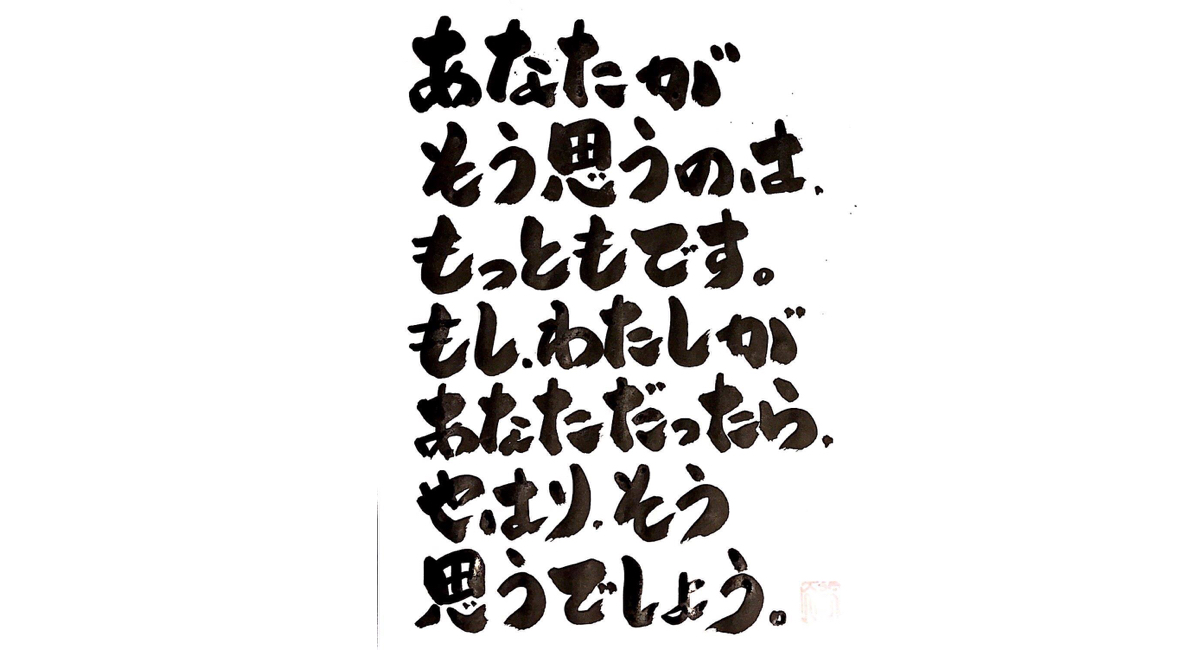 あなたが
そう思うのは、
もっともです。
もし、わたしが
あなただったら、
やはり、そう
思うでしょう。